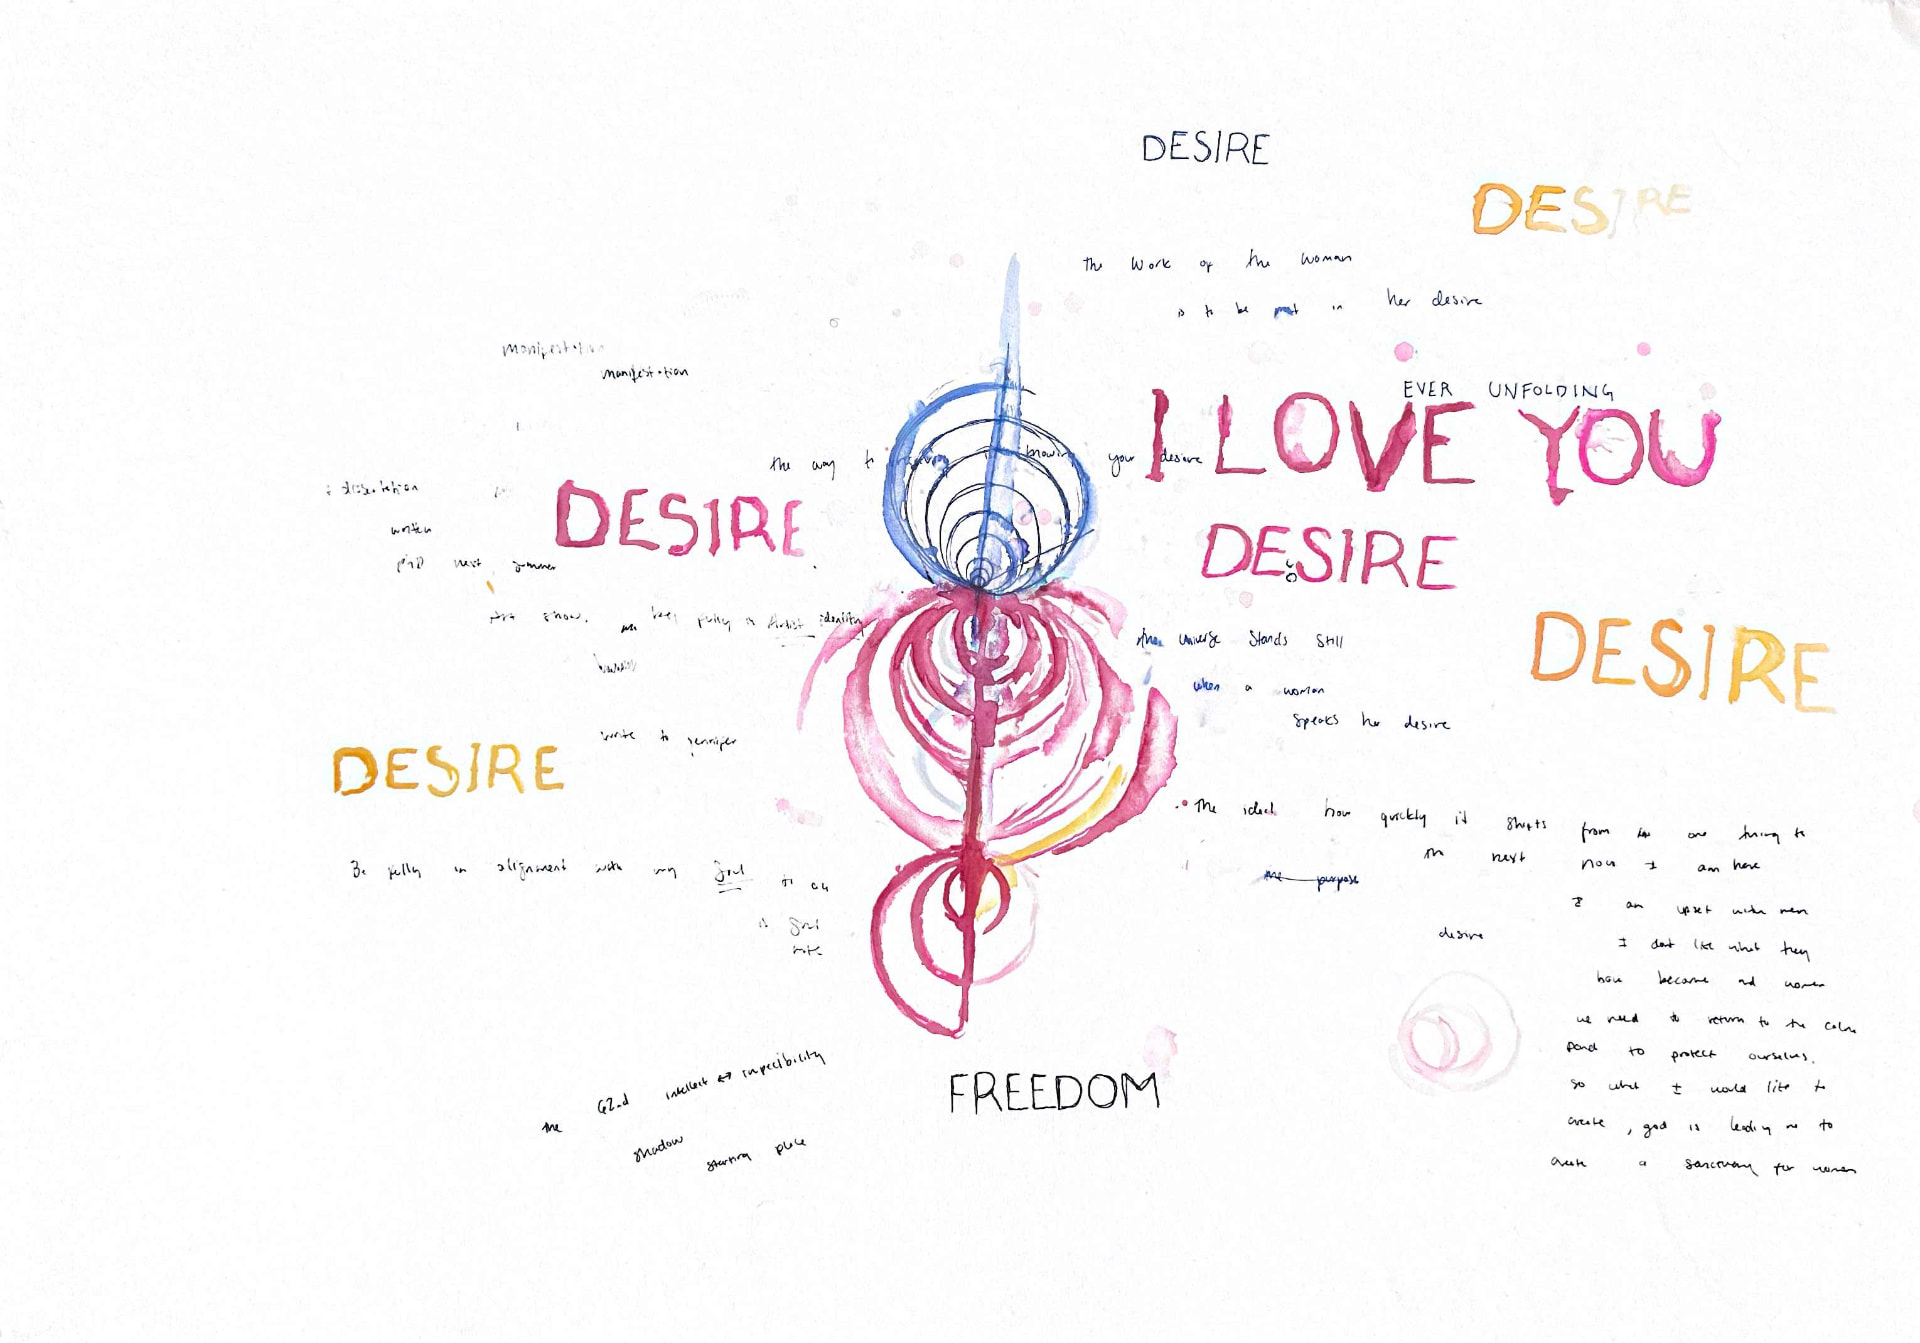 DESIRE
DESIRE
the work of the woman
is to be met in her desire
manifestation
manifestation
EVER UNFOLDING
I LOVE YOU
the way to is knowing your desire
dissertation
written
PhD next summer
DESIRE
DESIRE
art show. fully in Artist identity
the universe stands still
when a woman
speaks her desire
DESIRE
write to jennifer
DESIRE
the ideas how quickly it shifts from one thing to
the next now I am here
me purpose
Be fully in alignment with my Soul to
is Soul
I am upset with men
desire
I dont like what they
have become and women
we need to return to the
pond to protect ourselves.
so what I would like to
create, god is leading me to
create a sanctuary for women
FREEDOM
the intellect ↔
shadow
starting place